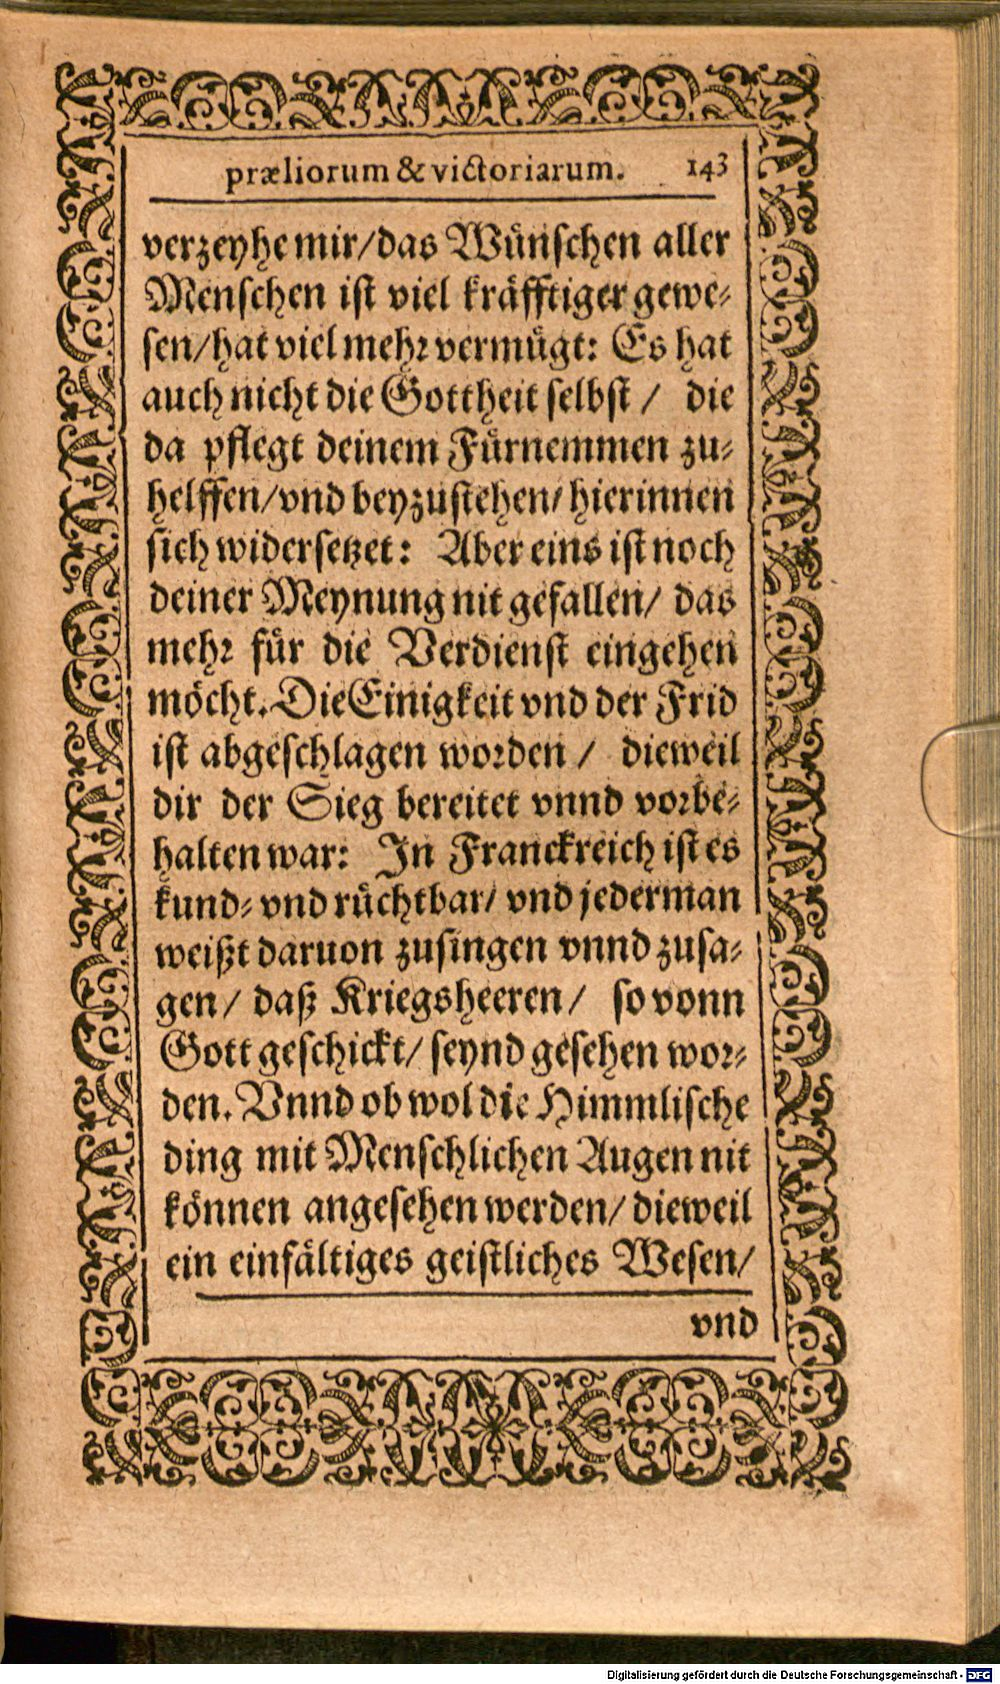 præliorum & victoriarum. 143
verzeyhe mir/das Wünschen aller
Menschen ist viel kräfftiger gewe-
sen/hat viel mehr vermügt: Es hat
auch nicht die Gottheit selbst / die
da pflegt deinem Fürnemmen zu-
helffen/vnd beyzustehen/hierinnen
sich widersetzet: Aber eins ist noch
deiner Meynung nit gefallen/ das
mehr für die Verdienst eingehen
möcht. Die Einigkeit vnd der Frid
ist abgeschlagen worden / dieweil
dir der Sieg bereitet vnnd vorbe-
halten war: In Franckreich ist es
kund- vnd rüchtbar/ vnd jederman
weißt daruon zusingen vnnd zusa-
gen/ daß Kriegsheeren/ so vonn
Gott geschickt/ seynd gesehen wor-
den. Vnnd ob wol die Himmlische
ding mit Menschlichen Augen nit
können angesehen werden/ dieweil
ein einfältiges geistliches Wesen/
vnd
Digitalisierung gefördert durch die Deutsche Forschungsgemeinschaft - DFG